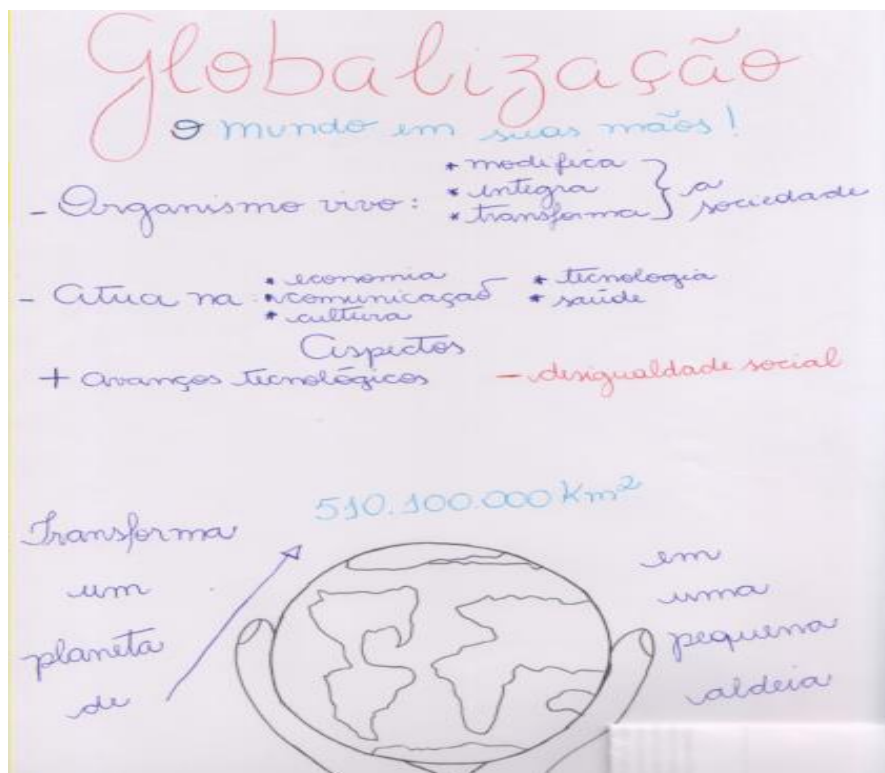 Globalização
O mundo em suas mãos!
- Organismo vivo: * modifica
* integra
* transforma } a sociedade
- Atua na: * economia
* comunicação
* cultura
* tecnologia
* saúde
Aspectos
+ avanços tecnológicos - desigualdade social
Transforma
um
planeta
de
510.100.000 Km²
em
uma
pequena
aldeia